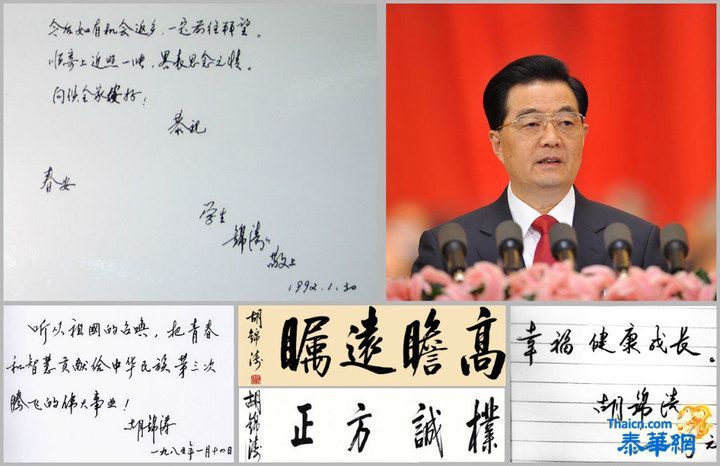 今后如有机会返乡，一定前往拜望。
顺寄上近照一帧，略表思念之情。
问候全家安好！
恭祝
春安
学生
锦涛
敬上
1992.1.30
听从祖国的召唤，把青春
和智慧贡献给中华民族第三次
腾飞的伟大事业！
胡锦涛
一九八七年一月十四日
高瞻遠矚
胡錦濤
樸誠方正
胡錦濤
幸福健康成长。
胡锦涛
Thaicn.com
泰華網